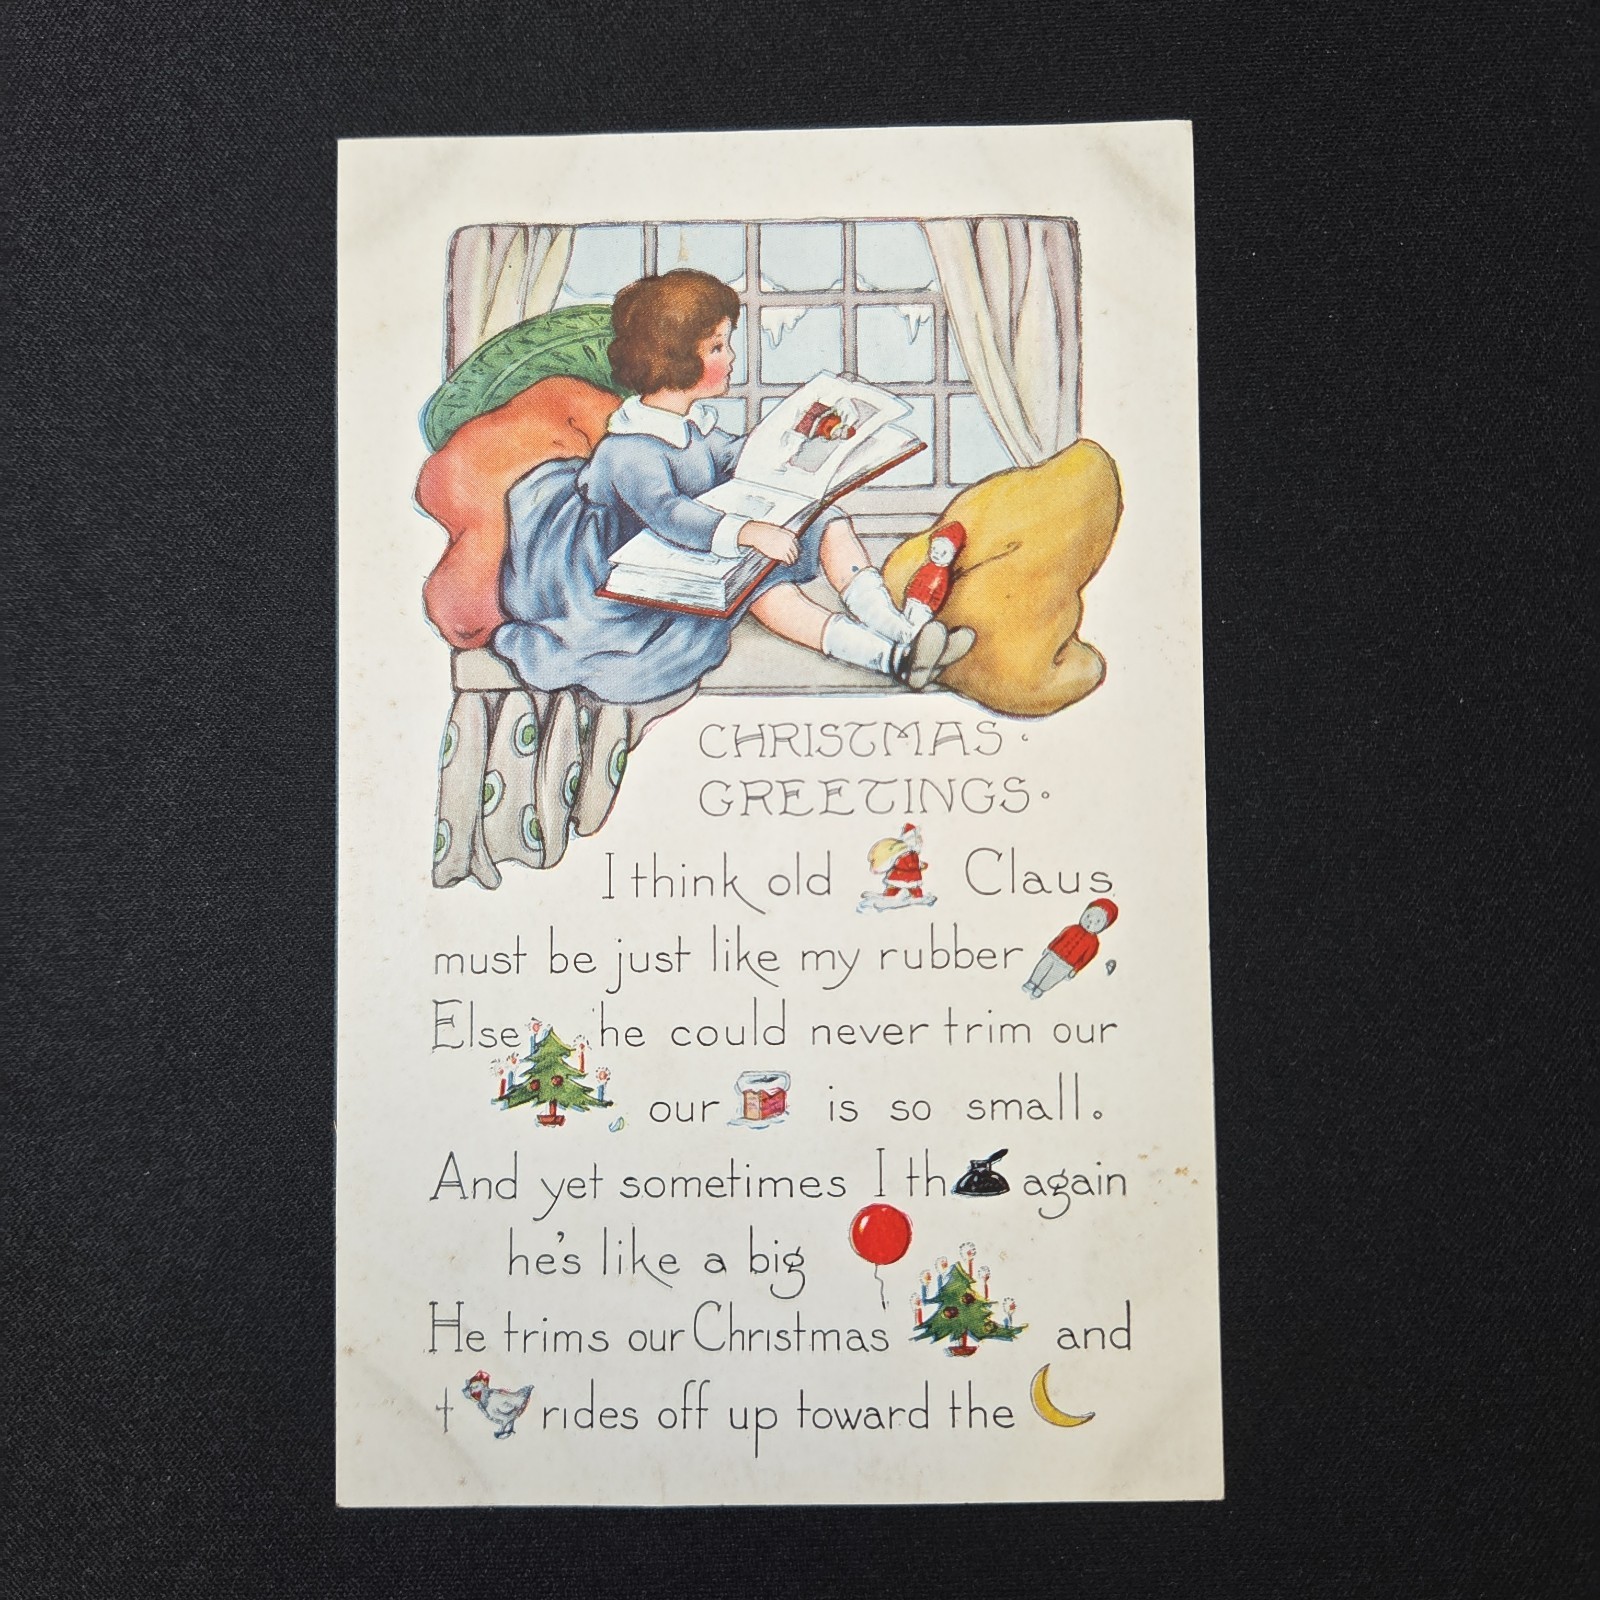 CHRISTMAS
GREETINGS
I think old Claus
must be just like my rubber ,
Else he could never trim our
, our is so small.
And yet sometimes I th again
he's like a big
He trims our Christmas and
t rides off up toward the